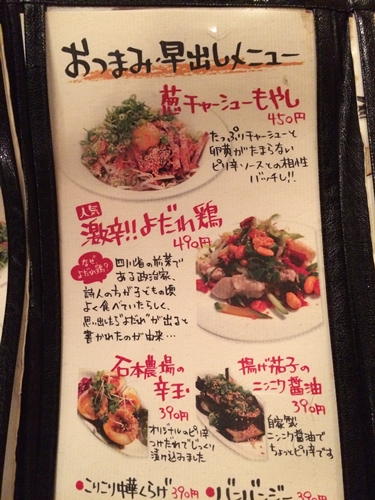 おつまみ・早出しメニュー
葱チャーシューもやし
450円
たっぷりチャーシューと
卵黄がたまらない
ピリ辛ソースとの相性
バッチし!!
人気
激辛!!よだれ鶏
490円
なぜ
よだれ鶏?
四川省の前菜で
ある政治家、
詩人の方が子どもの頃
よく食べていたらしく、
思い出しただけで"よだれ"が出ると
書かれたのが由来…
石本農場の
辛玉
390円
オリジナルのピリ辛
つけだれでじっくり
漬け込みました
揚げ茄子の
ニンニク醤油
390円
自家製
ニンニク醤油で
ちょっとピリ辛です
●こりこり中華くらげ 390円
●バンバンジー 390円